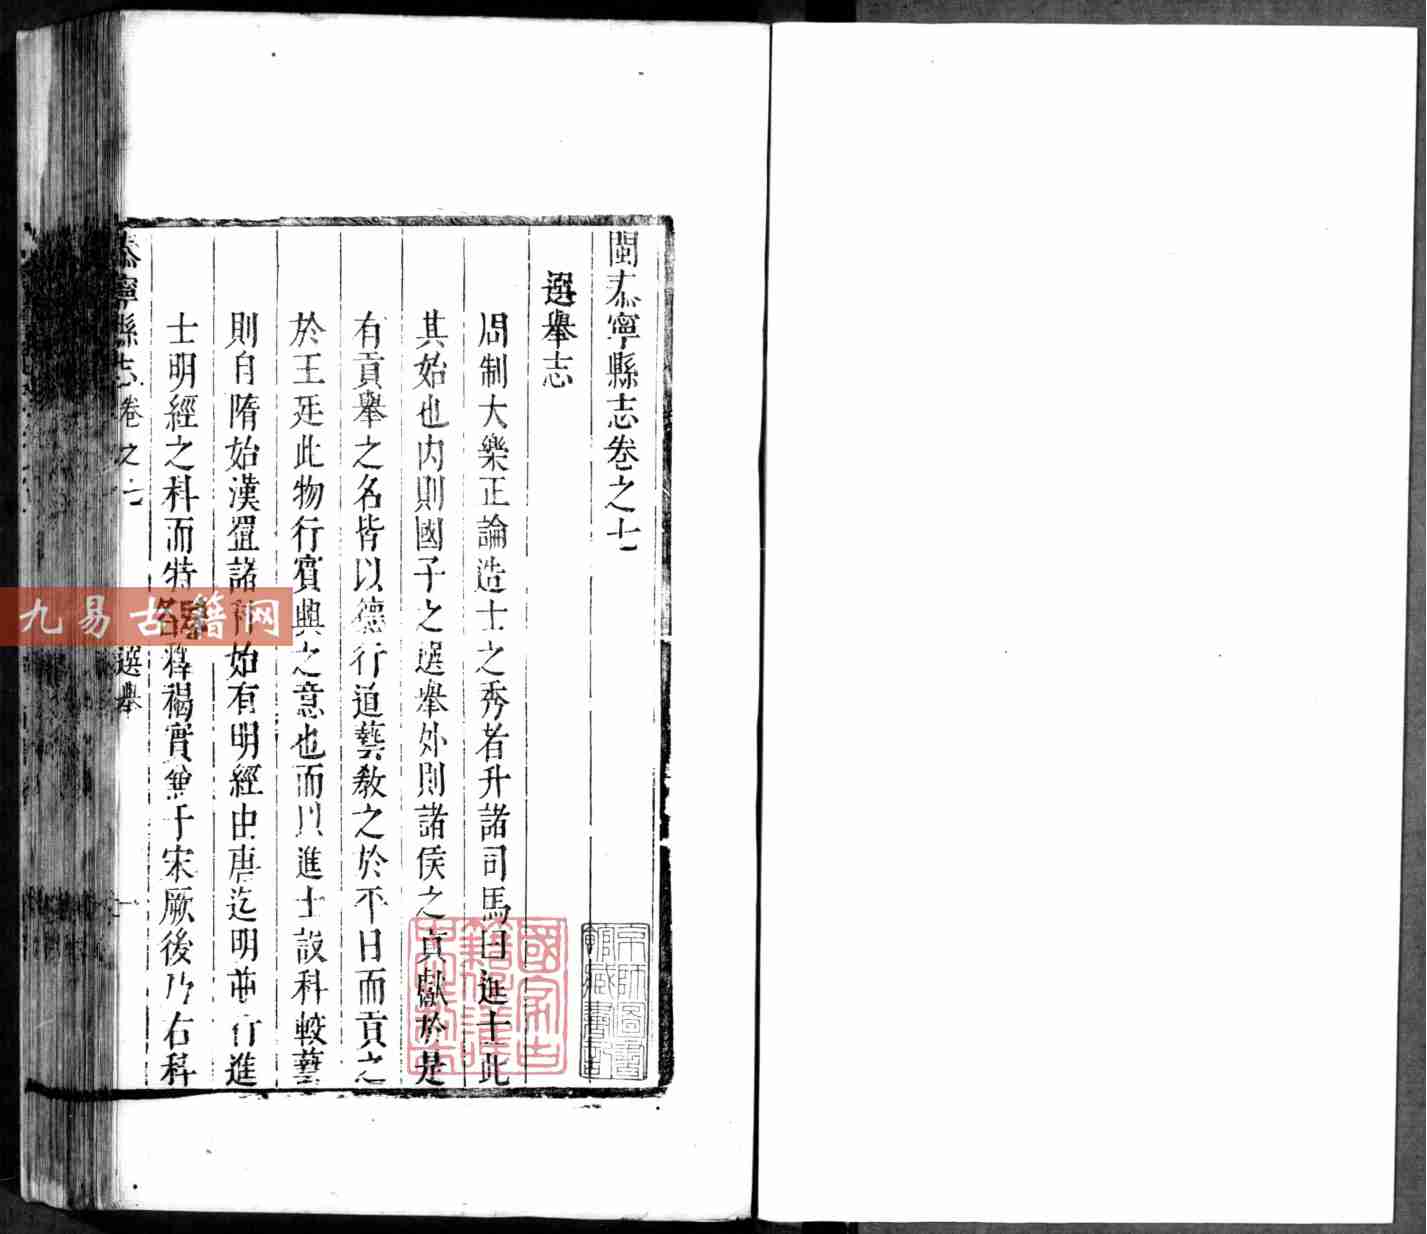 閩泰寧縣志卷之七
選舉志
周制大樂正論造士之秀者升諸司馬曰進士此
其始也內則國子之選舉外則諸侯之貢獻於是
有貢舉之名皆以德行道藝教之於不日而貢之
於王廷此物行賓興之意也而以進士設科較藝
則自隋始漢置諸科始有明經由唐迄明並行進
士明經之科而特名釋褐實兼于宋厥後乃右科
泰寧縣志 卷之七 選舉 一
京師圖書館藏書記
九易古籍网